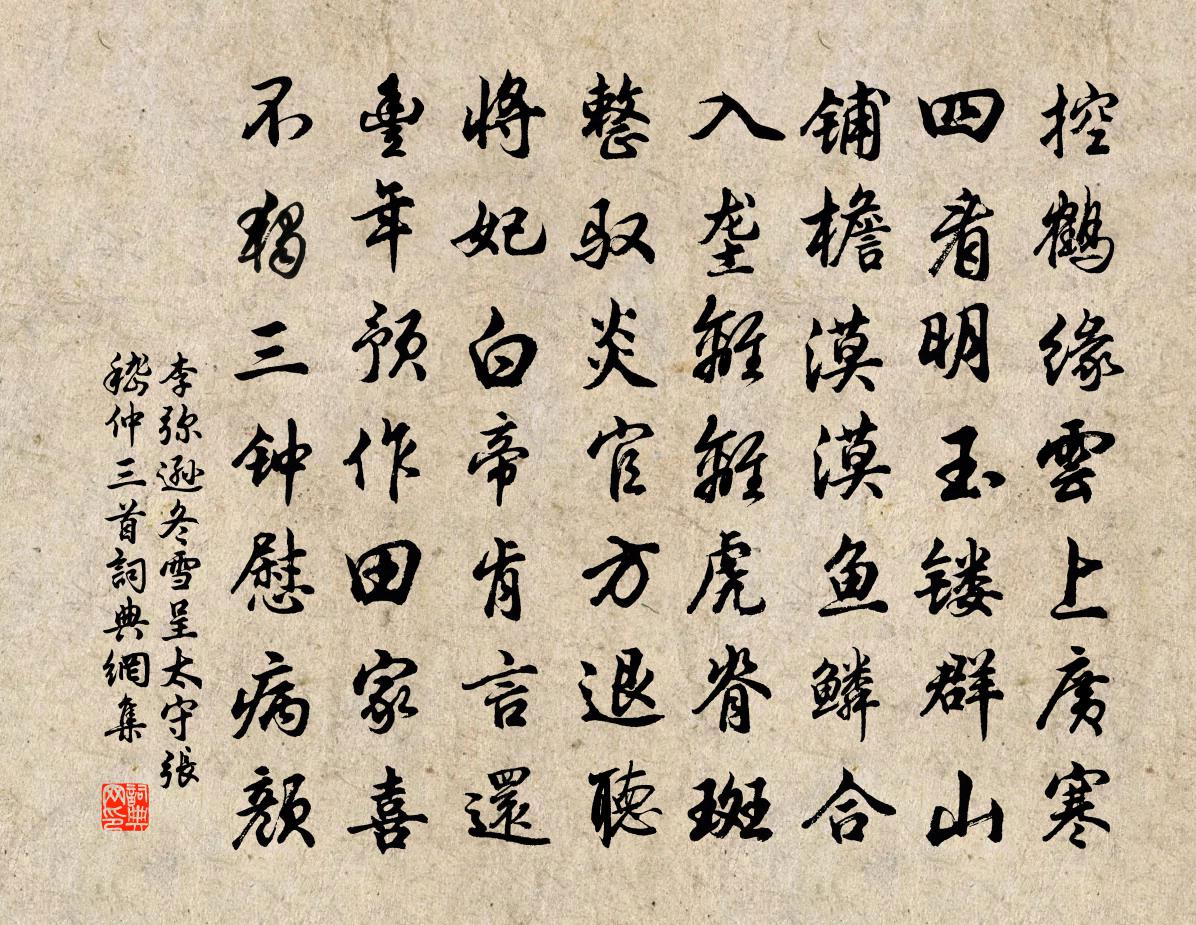 控鶴缘雲上广寒
四看明玉镂群山
铺檐漠漠鱼鳞合
入垄離離虎脊斑
整驭炎官方退聽
將妃白帝肯言還
豊年预作田家喜
不独三钟慰病颜
李弥遜冬雪呈太守張
嵇仲三首詞典網集
詞典
网印